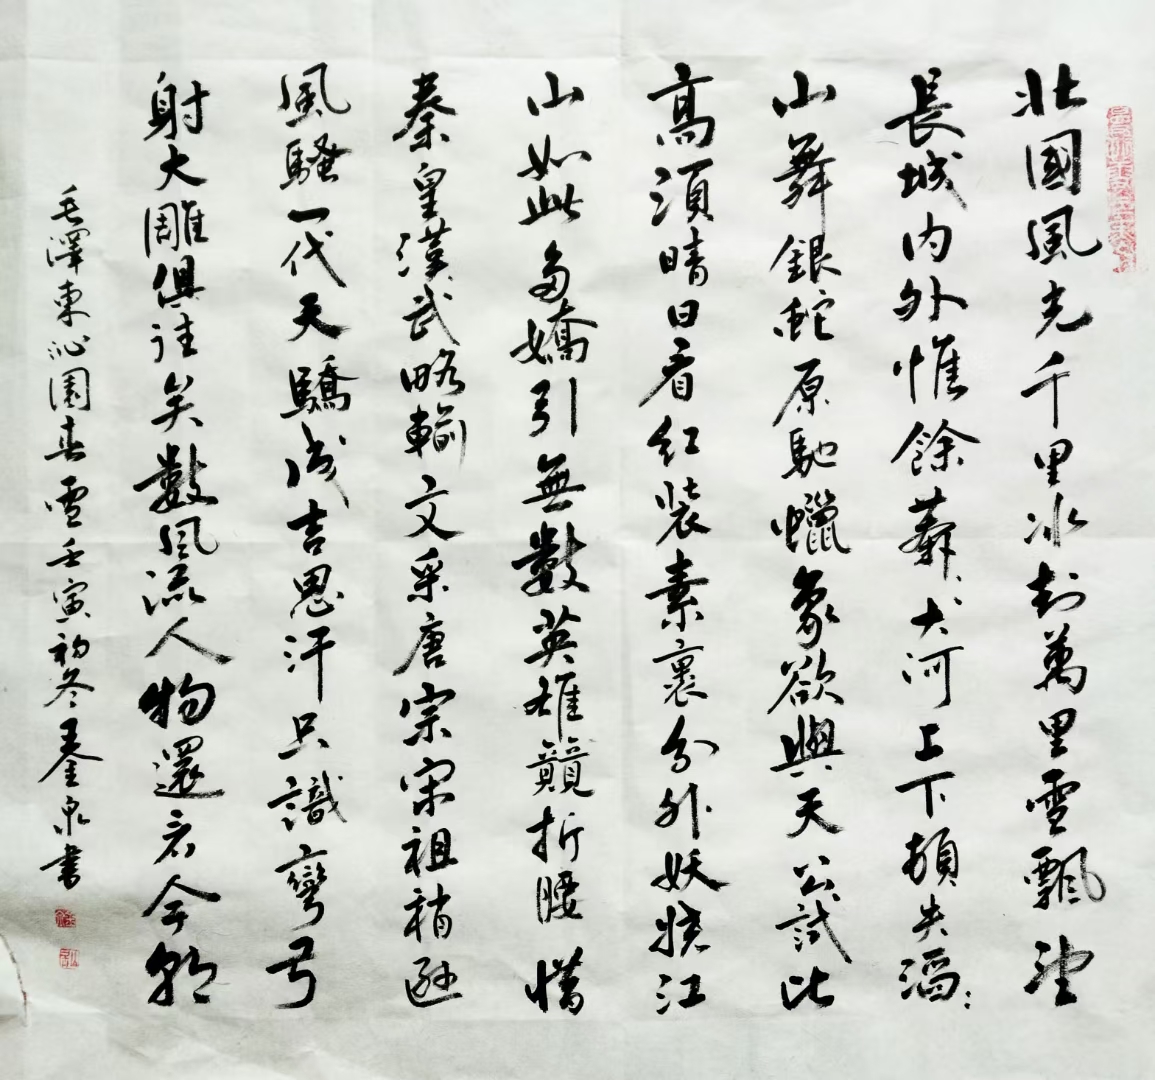 北國風光千里冰封萬里雪飄望
長城內外惟餘莽莽大河上下頓失滔滔
山舞銀蛇原馳蠟象欲與天公試比
高須晴日看紅裝素裹分外妖嬈江
山如此多嬌引無數英雄競折腰惜
秦皇漢武略輸文采唐宗宋祖稍遜
風騷一代天驕成吉思汗只識彎弓
射大雕俱往矣數風流人物還看今朝
毛澤東沁園春雪壬寅初冬鋆泉書